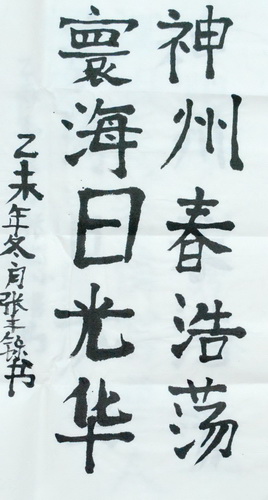 神州春浩荡
寰海日光华
乙未年冬月张玉録书